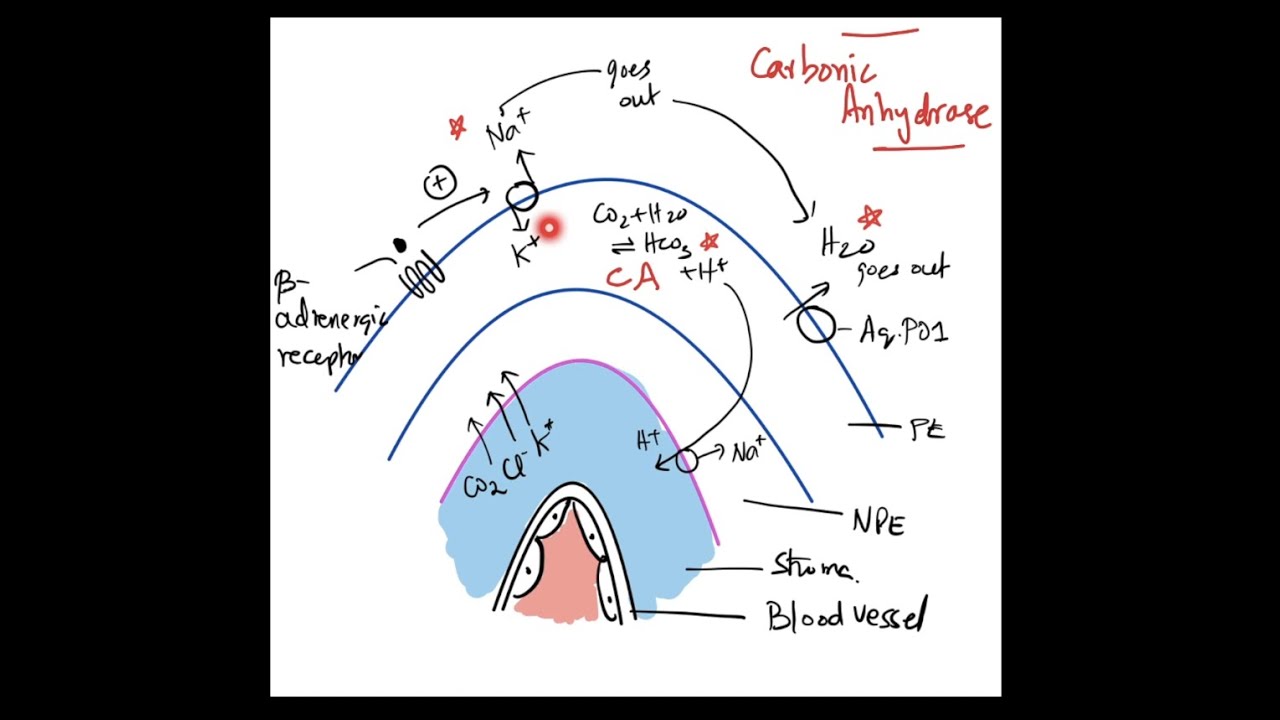 Carbonic
Anhydrase
goes
out
Na+
+
K+
CO2+H2O
⇌ HCO3
CA +H+
H2O
goes out
β-
adrenergic
receptor
Aq.PO1
PE
CO2 Cl- K+
H+
Na+
NPE
Stroma.
Blood vessel